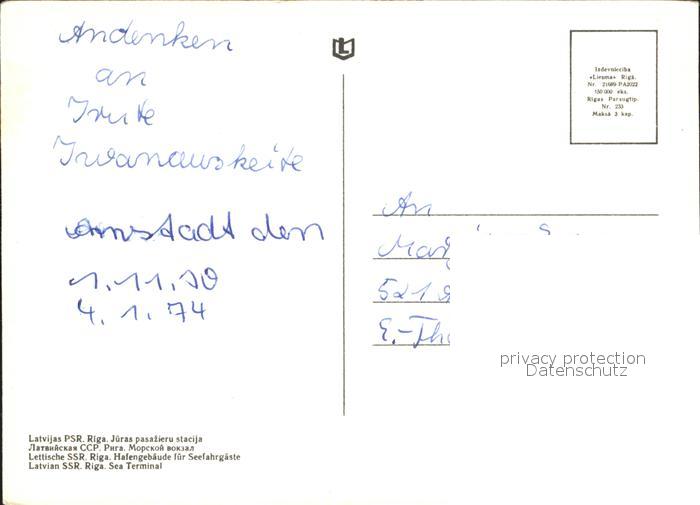 Andenken
an
Irute
Iwanauskeite
Arnstadt den
1.11.70
4. 1. 74
Izdevniecība
«Liesma» Rīgā.
150 000 eks.
Rīgas Paraugtip.
Nr. 233
Maksā 3 kap.
An
521
E.-Th
privacy protection
Datenschutz
Latvijas PSR. Rīga. Jūras pasažieru stacija
Латвийская ССР. Рига. Морской вокзал
Lettische SSR. Riga. Hafengebäude für Seefahrgäste
Latvian SSR. Riga. Sea Terminal